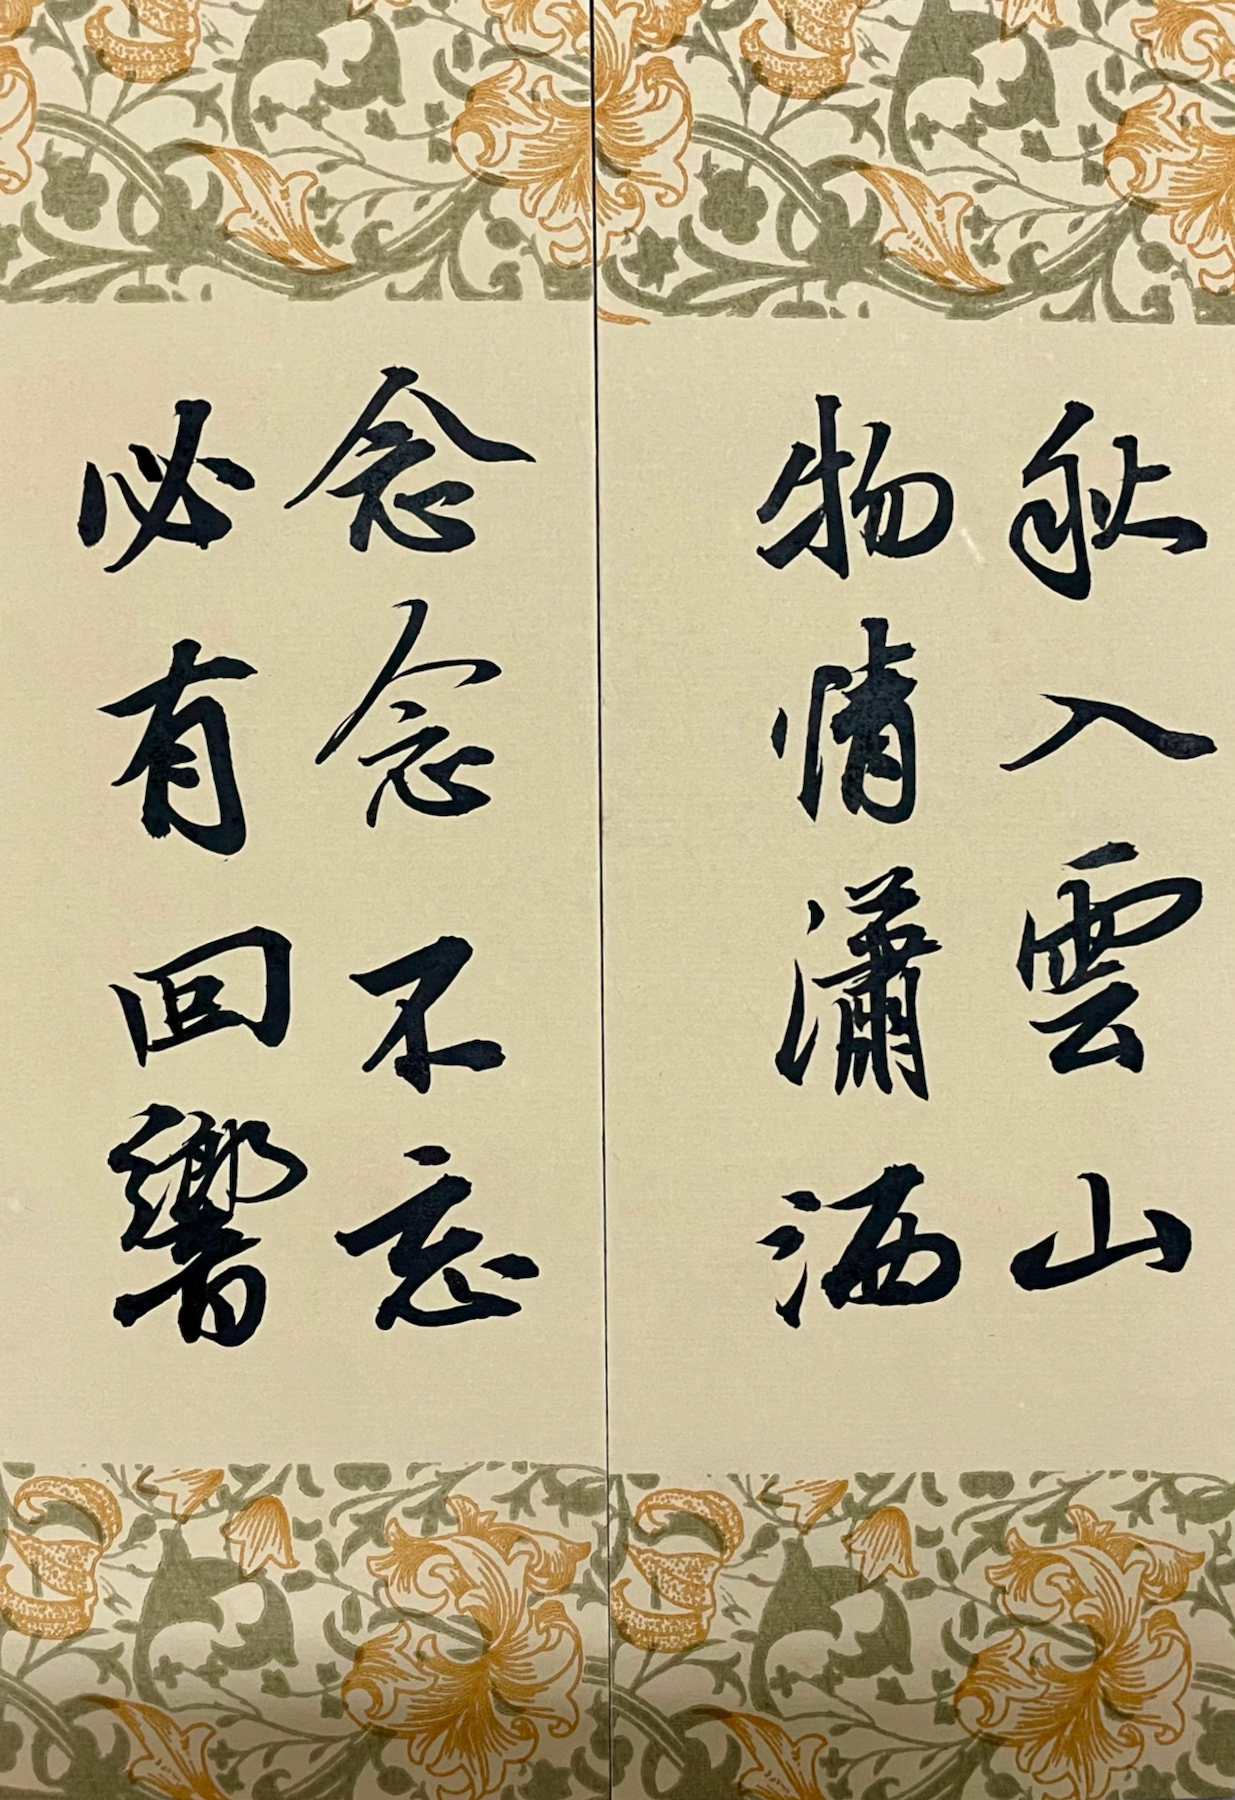 秋入雲山
物情瀟洒
念念不忘
必有回響